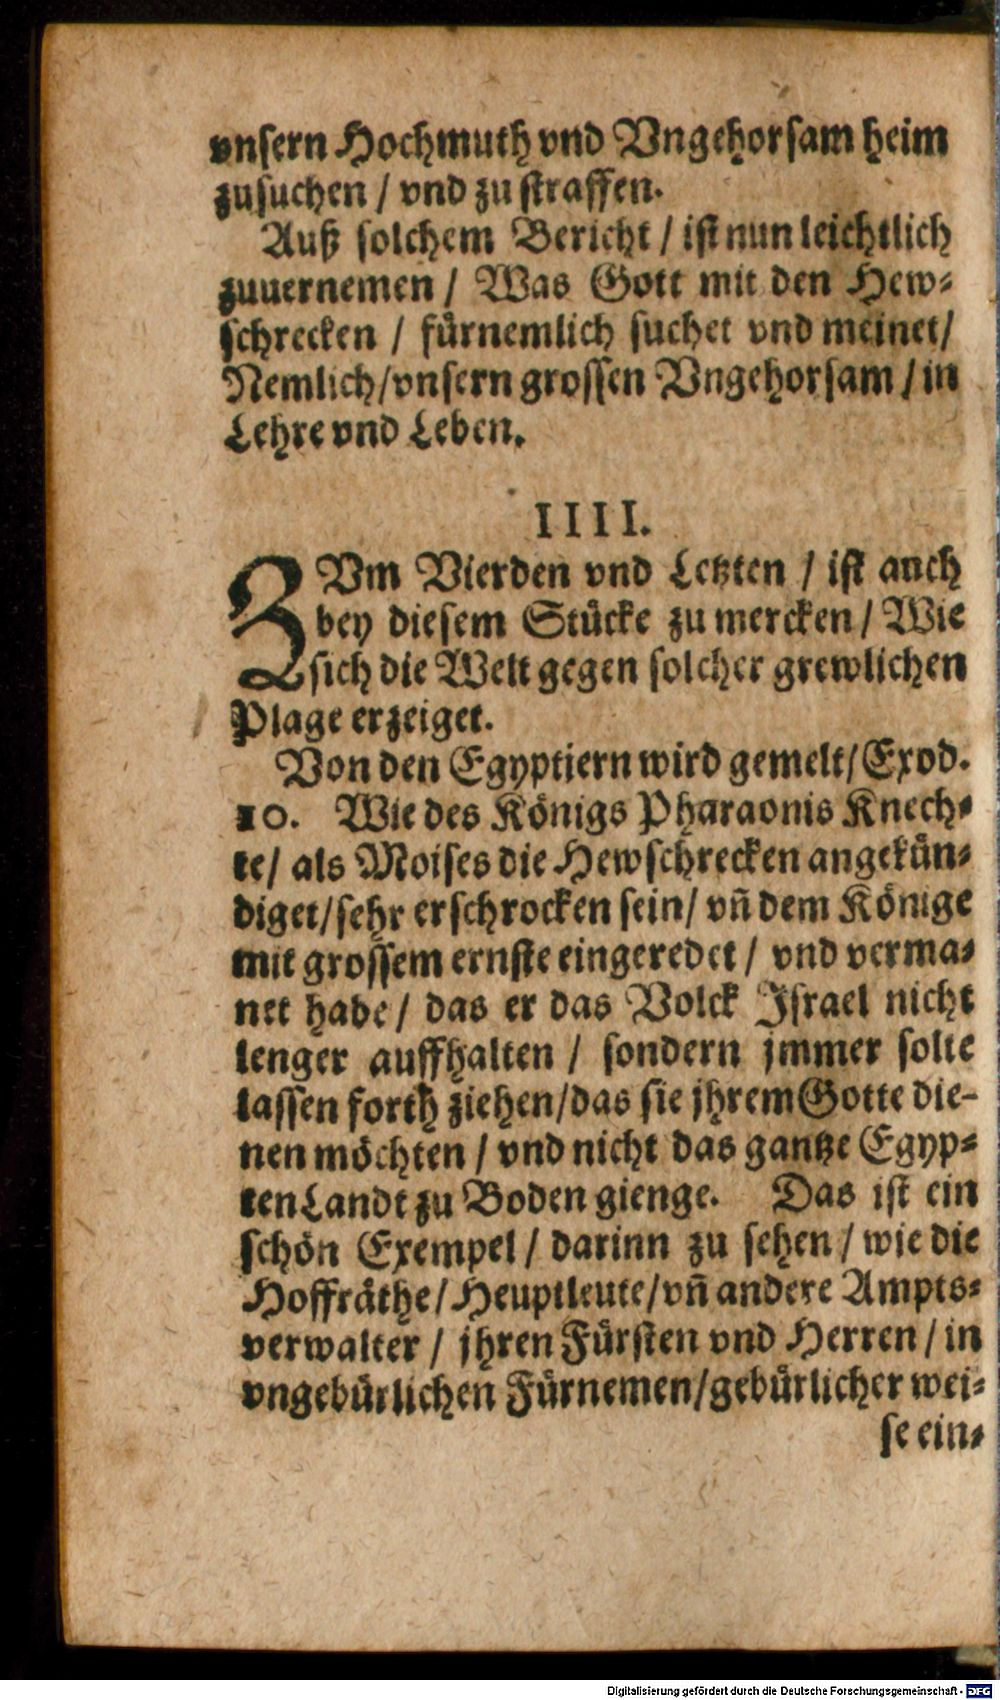 vnsern Hochmuth vnd Vngehorsam heim
zusuchen / vnd zu straffen.
Auß solchem Bericht / ist nun leichtlich
zuuernemen / Was Gott mit den Hew-
schrecken / fürnemlich suchet vnd meinet/
Nemlich/vnsern grossen Vngehorsam / in
Lehre vnd Leben.
IIII.
ZVm Vierden vnd Letzten / ist auch
bey diesem Stücke zu mercken / Wie
sich die Welt gegen solcher grewlichen
Plage erzeiget.
Von den Egyptiern wird gemelt/Exod.
10. Wie des Königs Pharaonis Knech-
te/ als Moises die Hewschrecken angekün-
diget/sehr erschrocken sein/ vn̄ dem Könige
mit grossem ernste eingeredet / vnd verma-
net habe / das er das Volck Israel nicht
lenger auffhalten / sondern jmmer solte
lassen forth ziehen/das sie jhrem Gotte die-
nen möchten / vnd nicht das gantze Egyp-
ten Landt zu Boden gienge. Das ist ein
schön Exempel / darinn zu sehen / wie die
Hoffräthe/Heuptleute/vn̄ andere Ampts-
verwalter / jhren Fürsten vnd Herren / in
vngebürlichen Fürnemen/gebürlicher wei-
se ein-
Digitalisierung gefördert durch die Deutsche Forschungsgemeinschaft - DFG